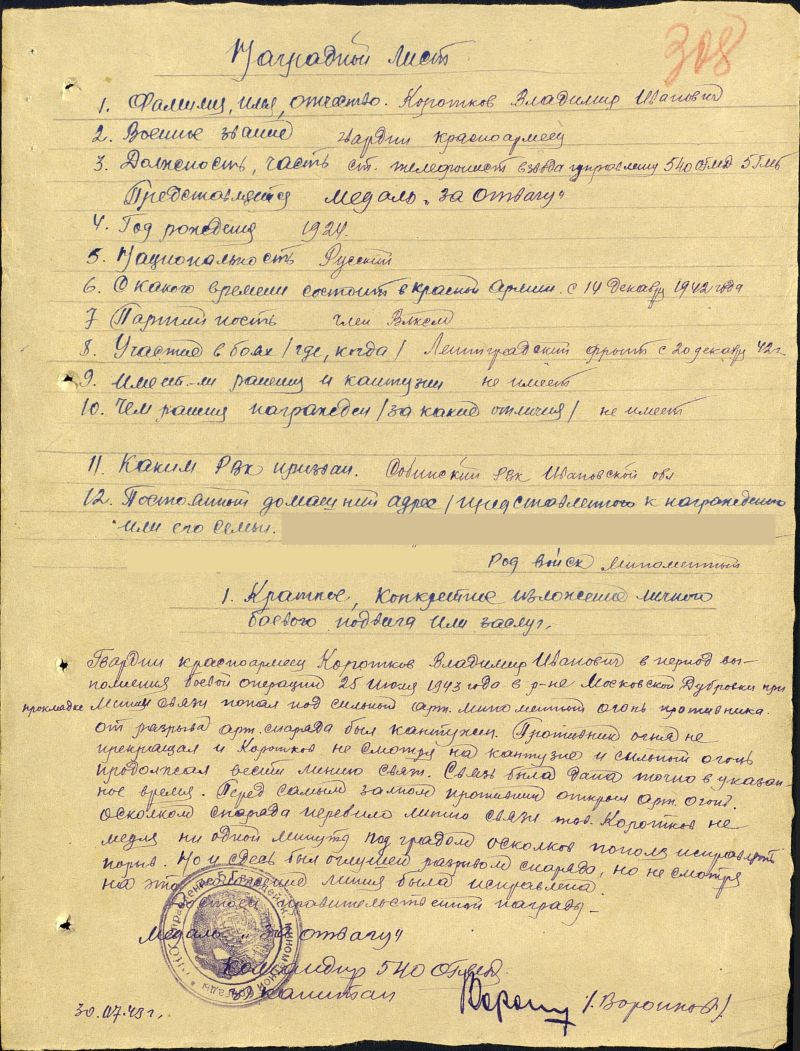 308
Наградной лист
1. Фамилия, имя, отчество. Коротков Владимир Иванович
2. Военное звание гвардии красноармеец
3. Должность, часть ст. телефонист взвода управлену 540 ОГМД 5 ГМБ
Представляется медаль "За отвагу"
4. Год рождения 1924.
5. Национальность Русский
6. С какого времени состоит в Красной Армии. с 14 декабря 1942 года
7 Партийность член Влксм
8. Участие в боях /где, когда/ Ленинградский фронт с 20 декабр 42 г.
9. Имеет-ли ранения и кантузии не имеет
10. Чем ранее награжден /за какие отличия/ не имеет
11. Каким Рвк призван. Собинский Рвк Ивановской обл
12. Постоянный домашний адрес /представленного к награждению
или его семьи.
Род войск минометный
1. Краткое, конкретное изложение личного
боевого подвига или заслуг.
Гвардии красноармеец Коротков Владимир Иванович в период вы-
полнения боевой операции 25 июля 1943 года в р-не Московской Дубровки при
прокладке линии связи попал под сильный арт. минометный огонь противника.
от разрыва арт. снаряда был кантужен. Противник огня не
прекращал и Коротков не смотря на кантузию и сильный огонь
продолжал вести линию связи. Связь была дана точно в указан-
ное время. Перед самым залпом противник открыл арт. огонь.
осколком снаряда перебило линию связи тов. Коротков не
медля ни одной минуты под градом осколков пополз исправлять
порыв. Но и здесь был оглушен разрывом снаряда, но не смотря
на это линия была исправлена.
Достоен правительственной награды –
Медаль "За отвагу"
Командир 540 ОГМД
гв капитан /. Воронков/.
30.07.43 г.